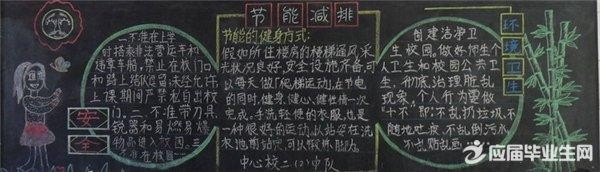 节能减排
一、不准在上学
时搭乘非法营运车和
违章车船，禁止在校门口
和路上
上课期间严禁私自出校
门。一、不准带刀具、
锐器和易燃易爆
物品进入校园。三
不准在校园
安全
节能的健身方式：
假如所住楼房的楼梯通风、采
光状况良好，安全设施齐备，可
以每天做“爬梯”运动，在节电
的同时，健身、健心、健性情一次
完成。手洗轻便的衣服，也是
一种很好的运动，以站姿在洗衣
池前站完，可以锻炼脚力。
中心校二(2)中队
创建洁净卫
生校园，做好师生个
人卫生和校园公共卫
生，彻底治理脏乱
现象，个人行为要做
“十不”即：不乱扔垃圾、不
随地吐痰、不乱倒污水
不乱贴乱画
环境卫生
应届毕业生网